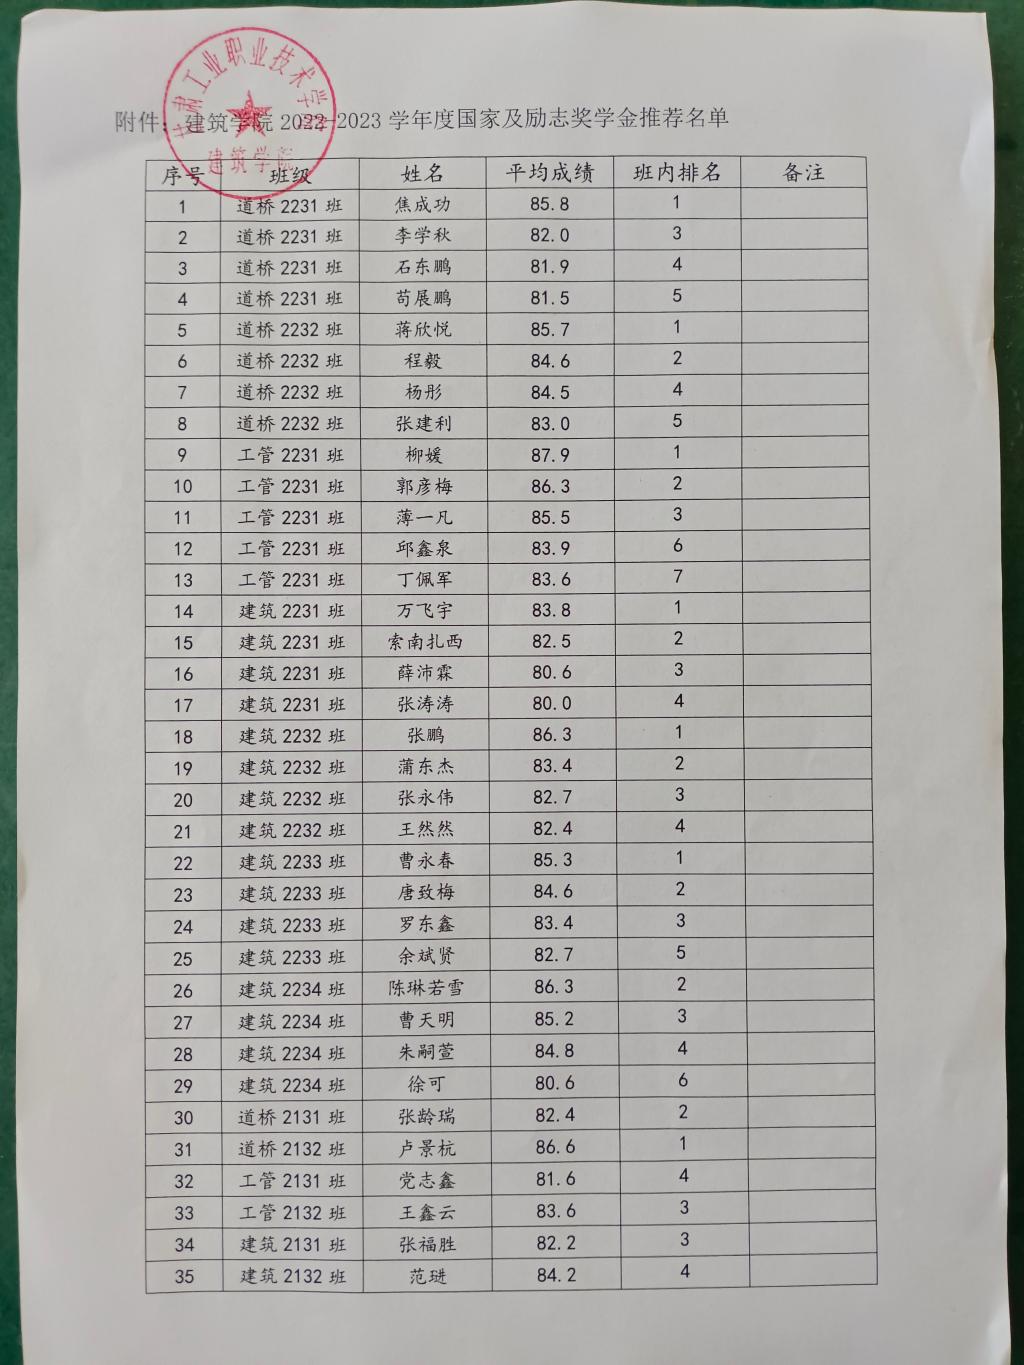 甘肃工业职业技术学院
建筑学院
附件：建筑学院 2022-2023 学年度国家及励志奖学金推荐名单
序号 班级 姓名 平均成绩 班内排名 备注
1 道桥 2231 班 焦成功 85.8 1
2 道桥 2231 班 李学秋 82.0 3
3 道桥 2231 班 石东鹏 81.9 4
4 道桥 2231 班 苟展鹏 81.5 5
5 道桥 2232 班 蒋欣悦 85.7 1
6 道桥 2232 班 程毅 84.6 2
7 道桥 2232 班 杨彤 84.5 4
8 道桥 2232 班 张建利 83.0 5
9 工管 2231 班 柳媛 87.9 1
10 工管 2231 班 郭彦梅 86.3 2
11 工管 2231 班 薄一凡 85.5 3
12 工管 2231 班 邱鑫泉 83.9 6
13 工管 2231 班 丁佩军 83.6 7
14 建筑 2231 班 万飞宇 83.8 1
15 建筑 2231 班 索南扎西 82.5 2
16 建筑 2231 班 薛沛霖 80.6 3
17 建筑 2231 班 张涛涛 80.0 4
18 建筑 2232 班 张鹏 86.3 1
19 建筑 2232 班 蒲东杰 83.4 2
20 建筑 2232 班 张永伟 82.7 3
21 建筑 2232 班 王然然 82.4 4
22 建筑 2233 班 曹永春 85.3 1
23 建筑 2233 班 唐致梅 84.6 2
24 建筑 2233 班 罗东鑫 83.4 3
25 建筑 2233 班 余斌贤 82.7 5
26 建筑 2234 班 陈琳若雪 86.3 2
27 建筑 2234 班 曹天明 85.2 3
28 建筑 2234 班 朱嗣萱 84.8 4
29 建筑 2234 班 徐可 80.6 6
30 道桥 2131 班 张龄瑞 82.4 2
31 道桥 2132 班 卢景杭 86.6 1
32 工管 2131 班 党志鑫 81.6 4
33 工管 2132 班 王鑫云 83.6 3
34 建筑 2131 班 张福胜 82.2 3
35 建筑 2132 班 范琎 84.2 4